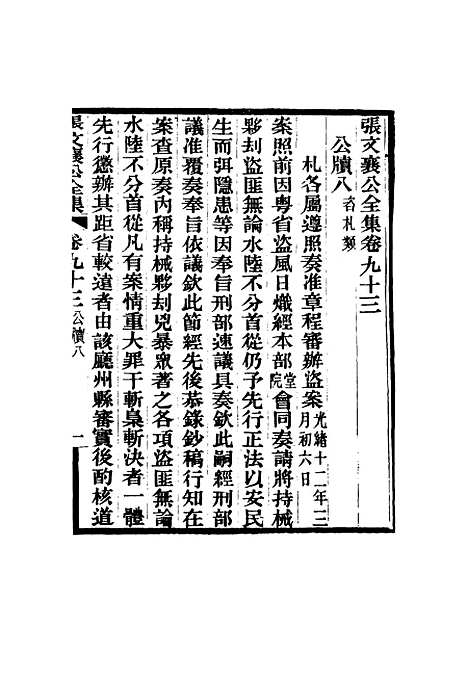 張文襄公全集卷九十三
公牘八咨札類
札各屬遵照奏准章程審辦盜案光緒十二年三月初六日
案照前因粵省盜風日熾經本部堂院會同奏請將持械
夥刦盜匪無論水陸不分首從仍予先行正法以安民
生而弭隱患等因奉旨刑部速議具奏欽此嗣經刑部
議准覆奏奉旨依議欽此節經先後恭錄鈔稿行知在
案查原奏內稱持械夥刦兇暴眾著之各項盜匪無論
水陸不分首從凡有案情重大罪干斬梟斬決者一體
先行懲辦其距省較遠者由該廳州縣審實後酌核道
張文襄公全集 卷九十三 公牘八 一